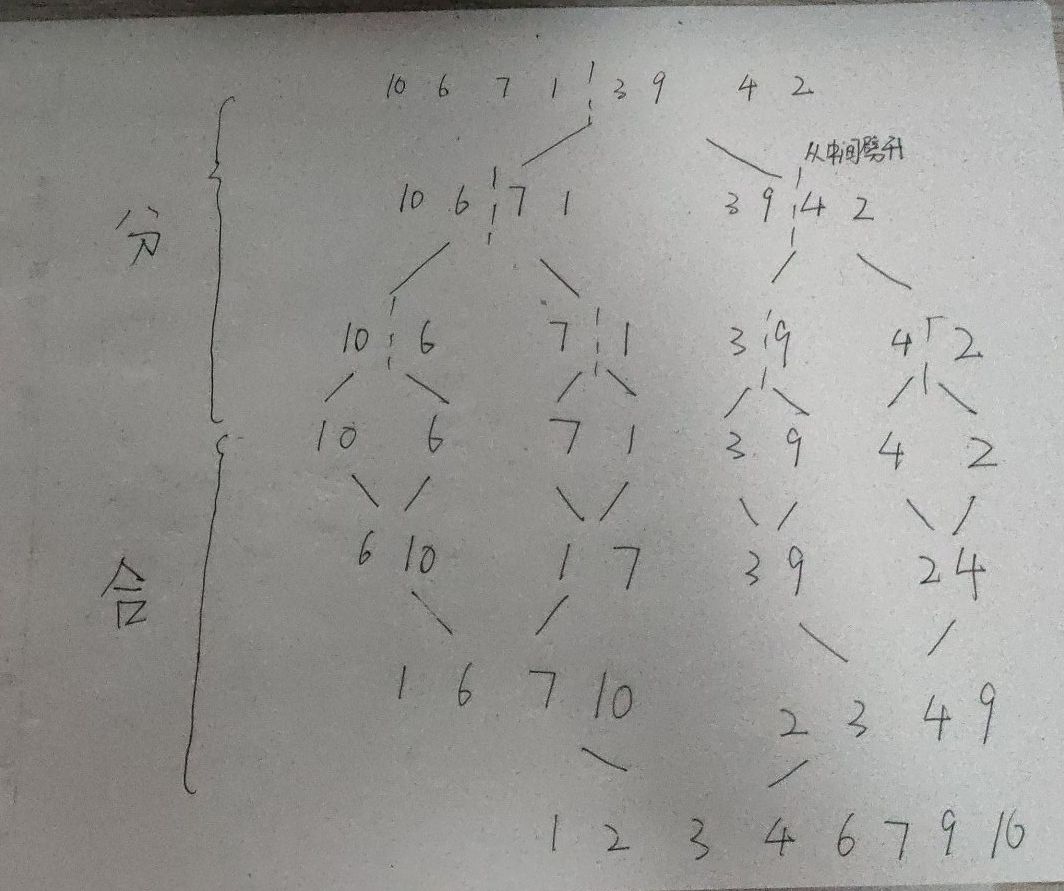 10 6 7 1 3 9 4 2
从中间劈开
10 6 7 1 3 9 4 2
分
10 6 7 1 3 9 4 2
10 6 7 1 3 9 4 2
6 10 1 7 3 9 2 4
合
1 6 7 10 2 3 4 9
1 2 3 4 6 7 9 10